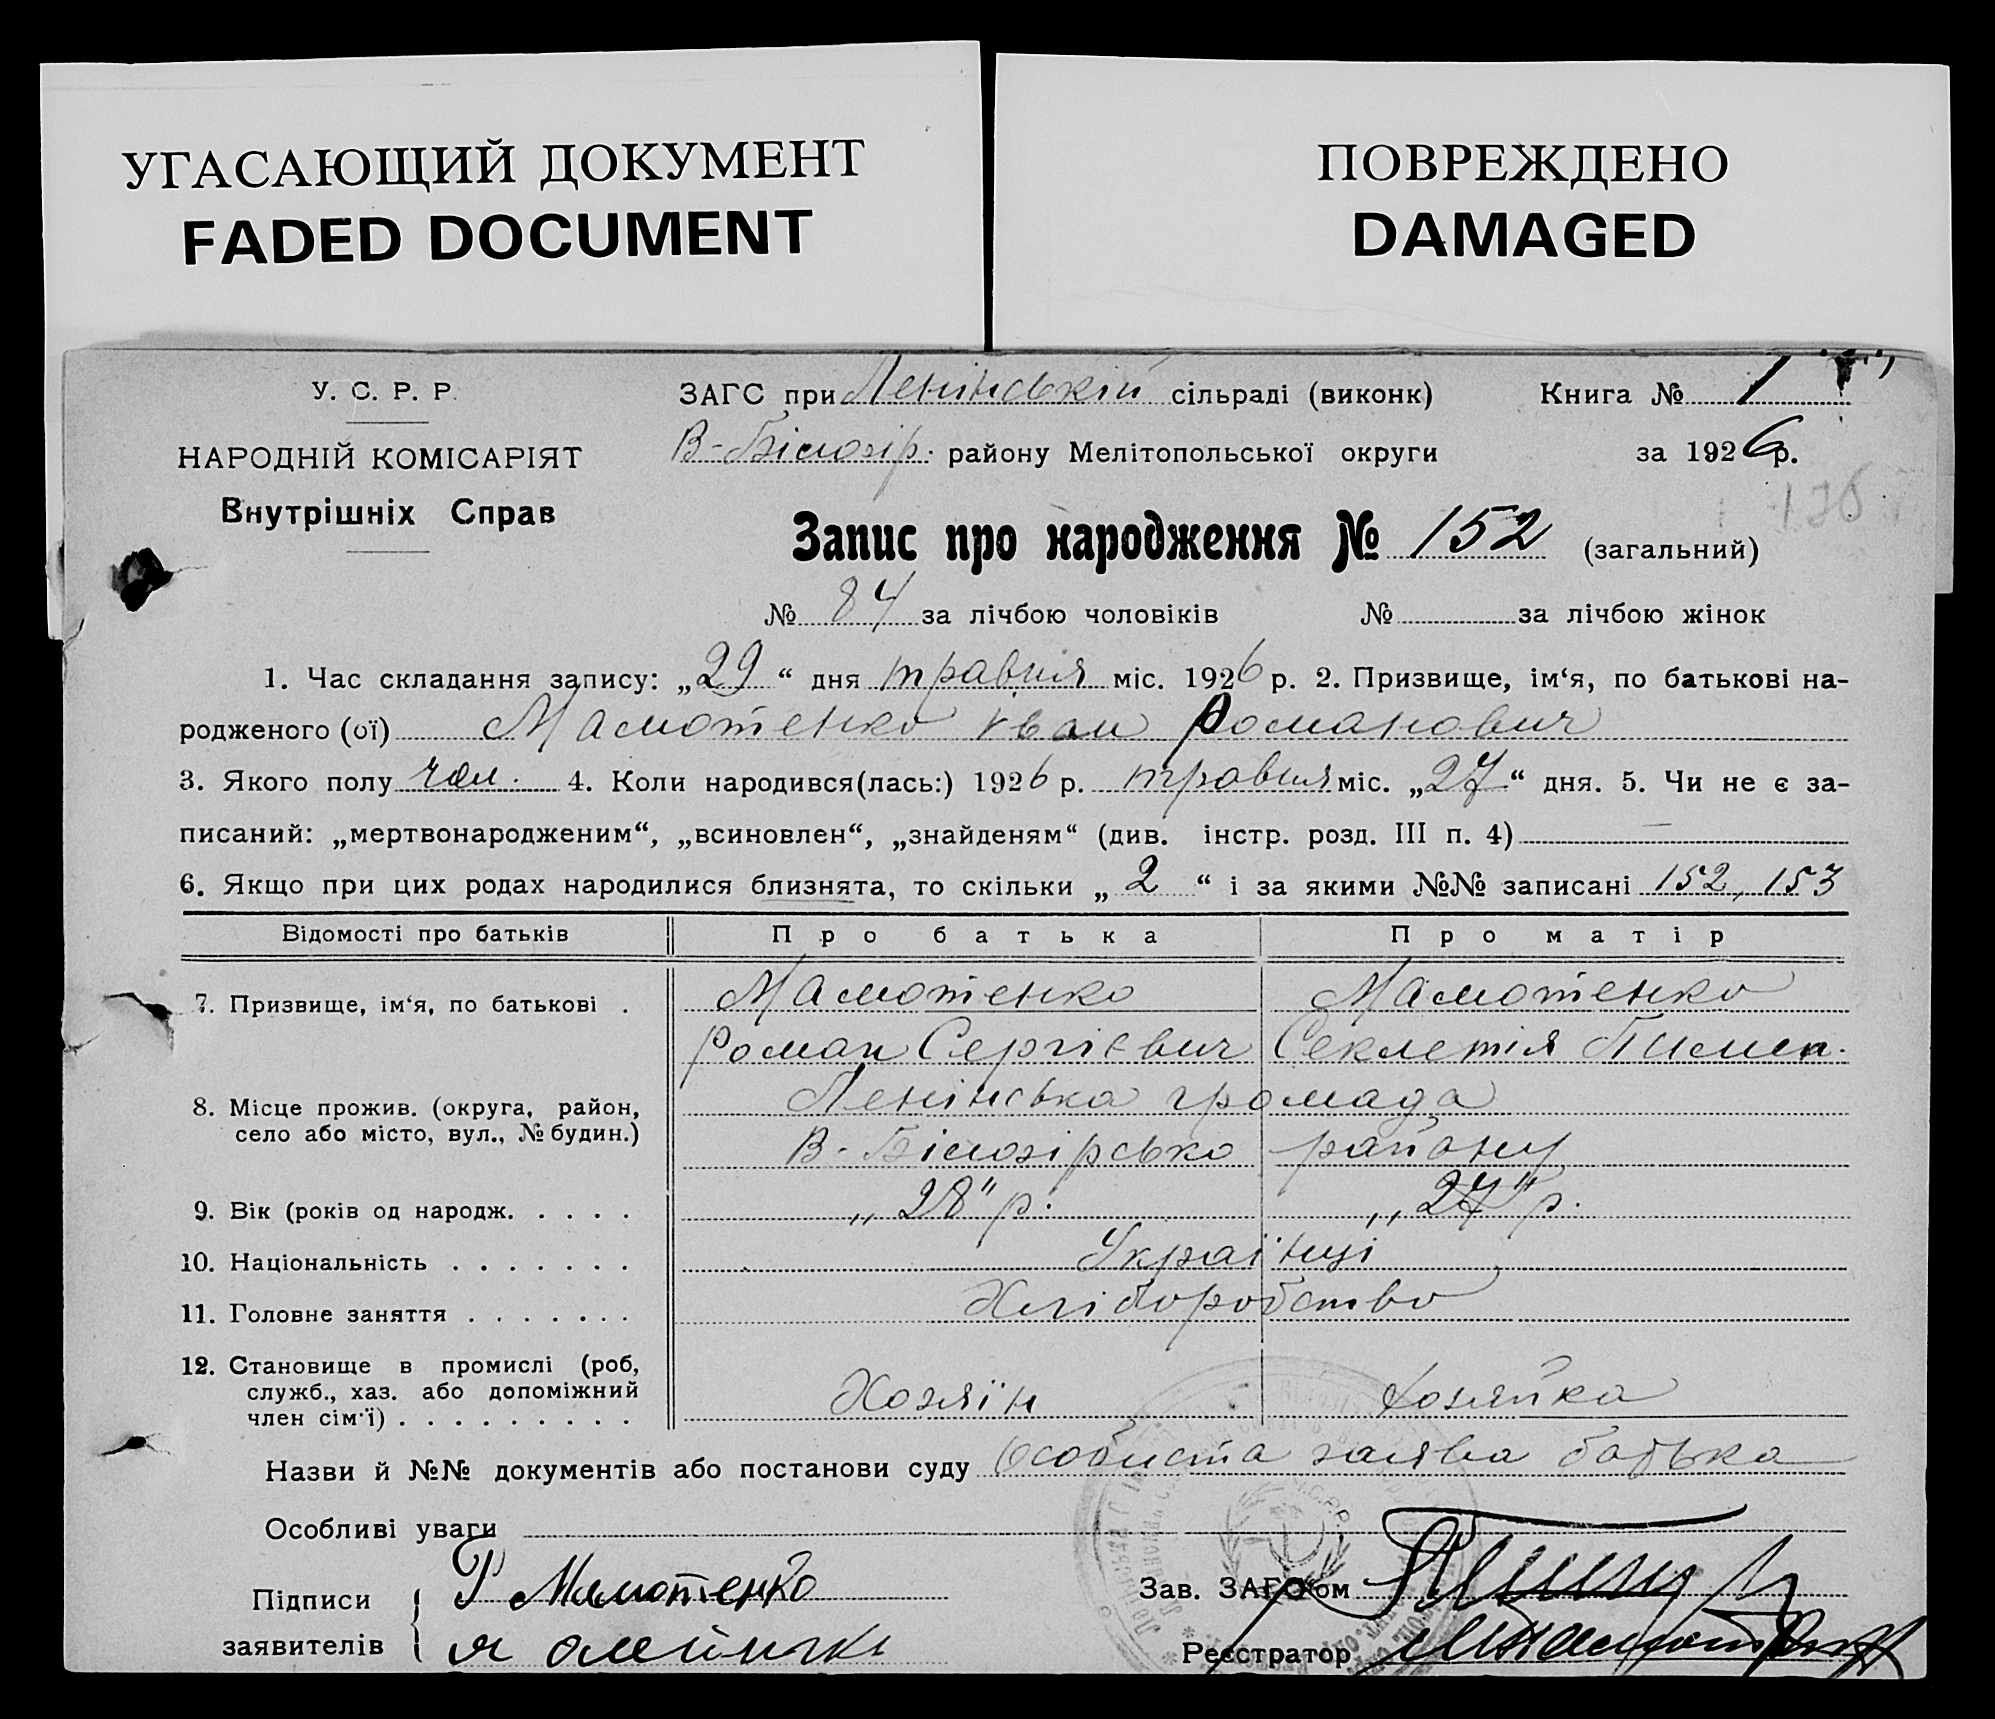 УГАСАЮЩИЙ ДОКУМЕНТ
FADED DOCUMENT
ПОВРЕЖДЕНО
DAMAGED
У. С. Р. Р.
НАРОДНІЙ КОМІСАРІЯТ
Внутрішніх Справ
ЗАГС при Ленінській сільраді (виконк) Книга № 1
В-Білозір. району Мелітопольської округи за 1926 р.
136
Запис про народження № 152 (загальний)
№ 84 за лічбою чоловіків № за лічбою жінок
1. Час складання запису: „29“ дня травня міс. 1926 р. 2. Призвище, ім‘я, по батькові на-
родженого (ої) Мамотенко Іван Романович
3. Якого полу чол. 4. Коли народився(лась:) 1926 р. травня міс. „27“ дня. 5. Чи не є за-
писаний: „мертвонародженим“, „всиновлен“, „знайденям“ (див. інстр. розд. III п. 4) —
6. Якщо при цих родах народилися близнята, то скільки „2“ і за якими №№ записані 152, 153
Відомості про батьків Про батька Про матір
7. Призвище, ім‘я, по батькові . Мамотенко Мамотенко
Роман Сергієвич Секлетія Пимен.
8. Місце прожив. (округа, район, Ленінська громада
село або місто, вул., № будин.) В-Білозірсько району
9. Вік (років од народж. . . . . „28“ р. „27“ р.
10. Національність . . . . . . . Українці
11. Головне заняття . . . . . . . Хліборобство
12. Становище в промислі (роб,
служб., хаз. або допоміжний Хозяїн Хозяйка
член сім‘ї) . . . . . . . . . .
Назви й №№ документів або постанови суду Особиста заява батька
Особливі уваги
Підписи Р Мамотенко Зав. ЗАГС‘ом
заявителів Реєстратор